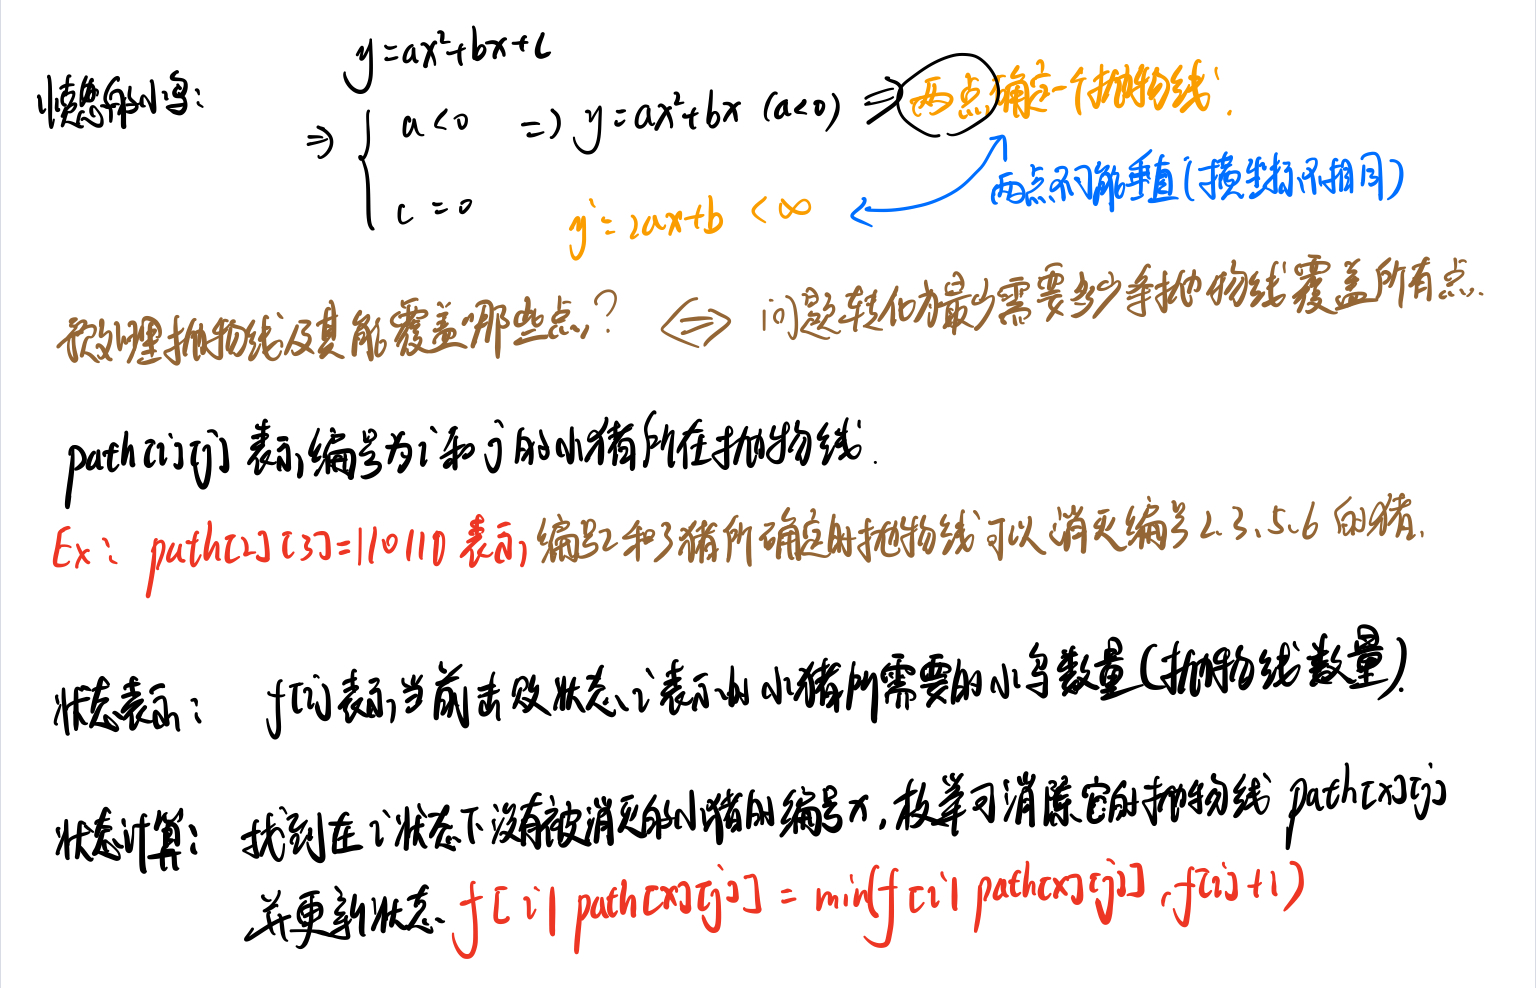 y=ax²+bx+c
愤怒的小鸟:
⇒ { a<0 ⇒ y=ax²+bx (a<0) ⇒ 两点确定一个抛物线.
c=0
两点不可能垂直(横坐标不相同)
y'=2ax+b <∞
预处理抛物线及其能覆盖哪些点? ⟺ 问题转化为最少需要多少条抛物线覆盖所有点.
path[i][j] 表示编号为i和j的小猪所在抛物线.
Ex: path[2][3]=110110 表示编号2和3猪所确定的抛物线可以消灭编号2.3.5.6的猪.
状态表示: f[i]表示当前击败状态i表示的小猪所需要的小鸟数量(抛物线数量).
状态计算: 找到在i状态下没有被消灭的小猪的编号x,枚举可消除它的抛物线 path[x][j]
并更新状态. f[i|path[x][j]] = min(f[i|path[x][j]],f[i]+1)